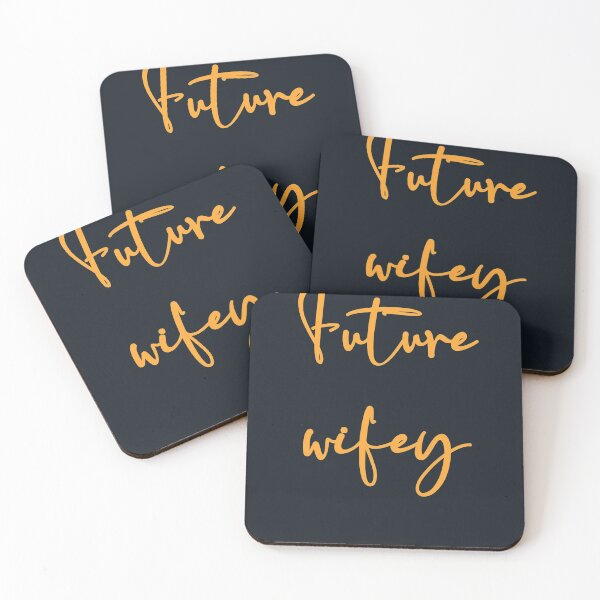 Future
Future
wifey
Future
wifey
Future
wifey